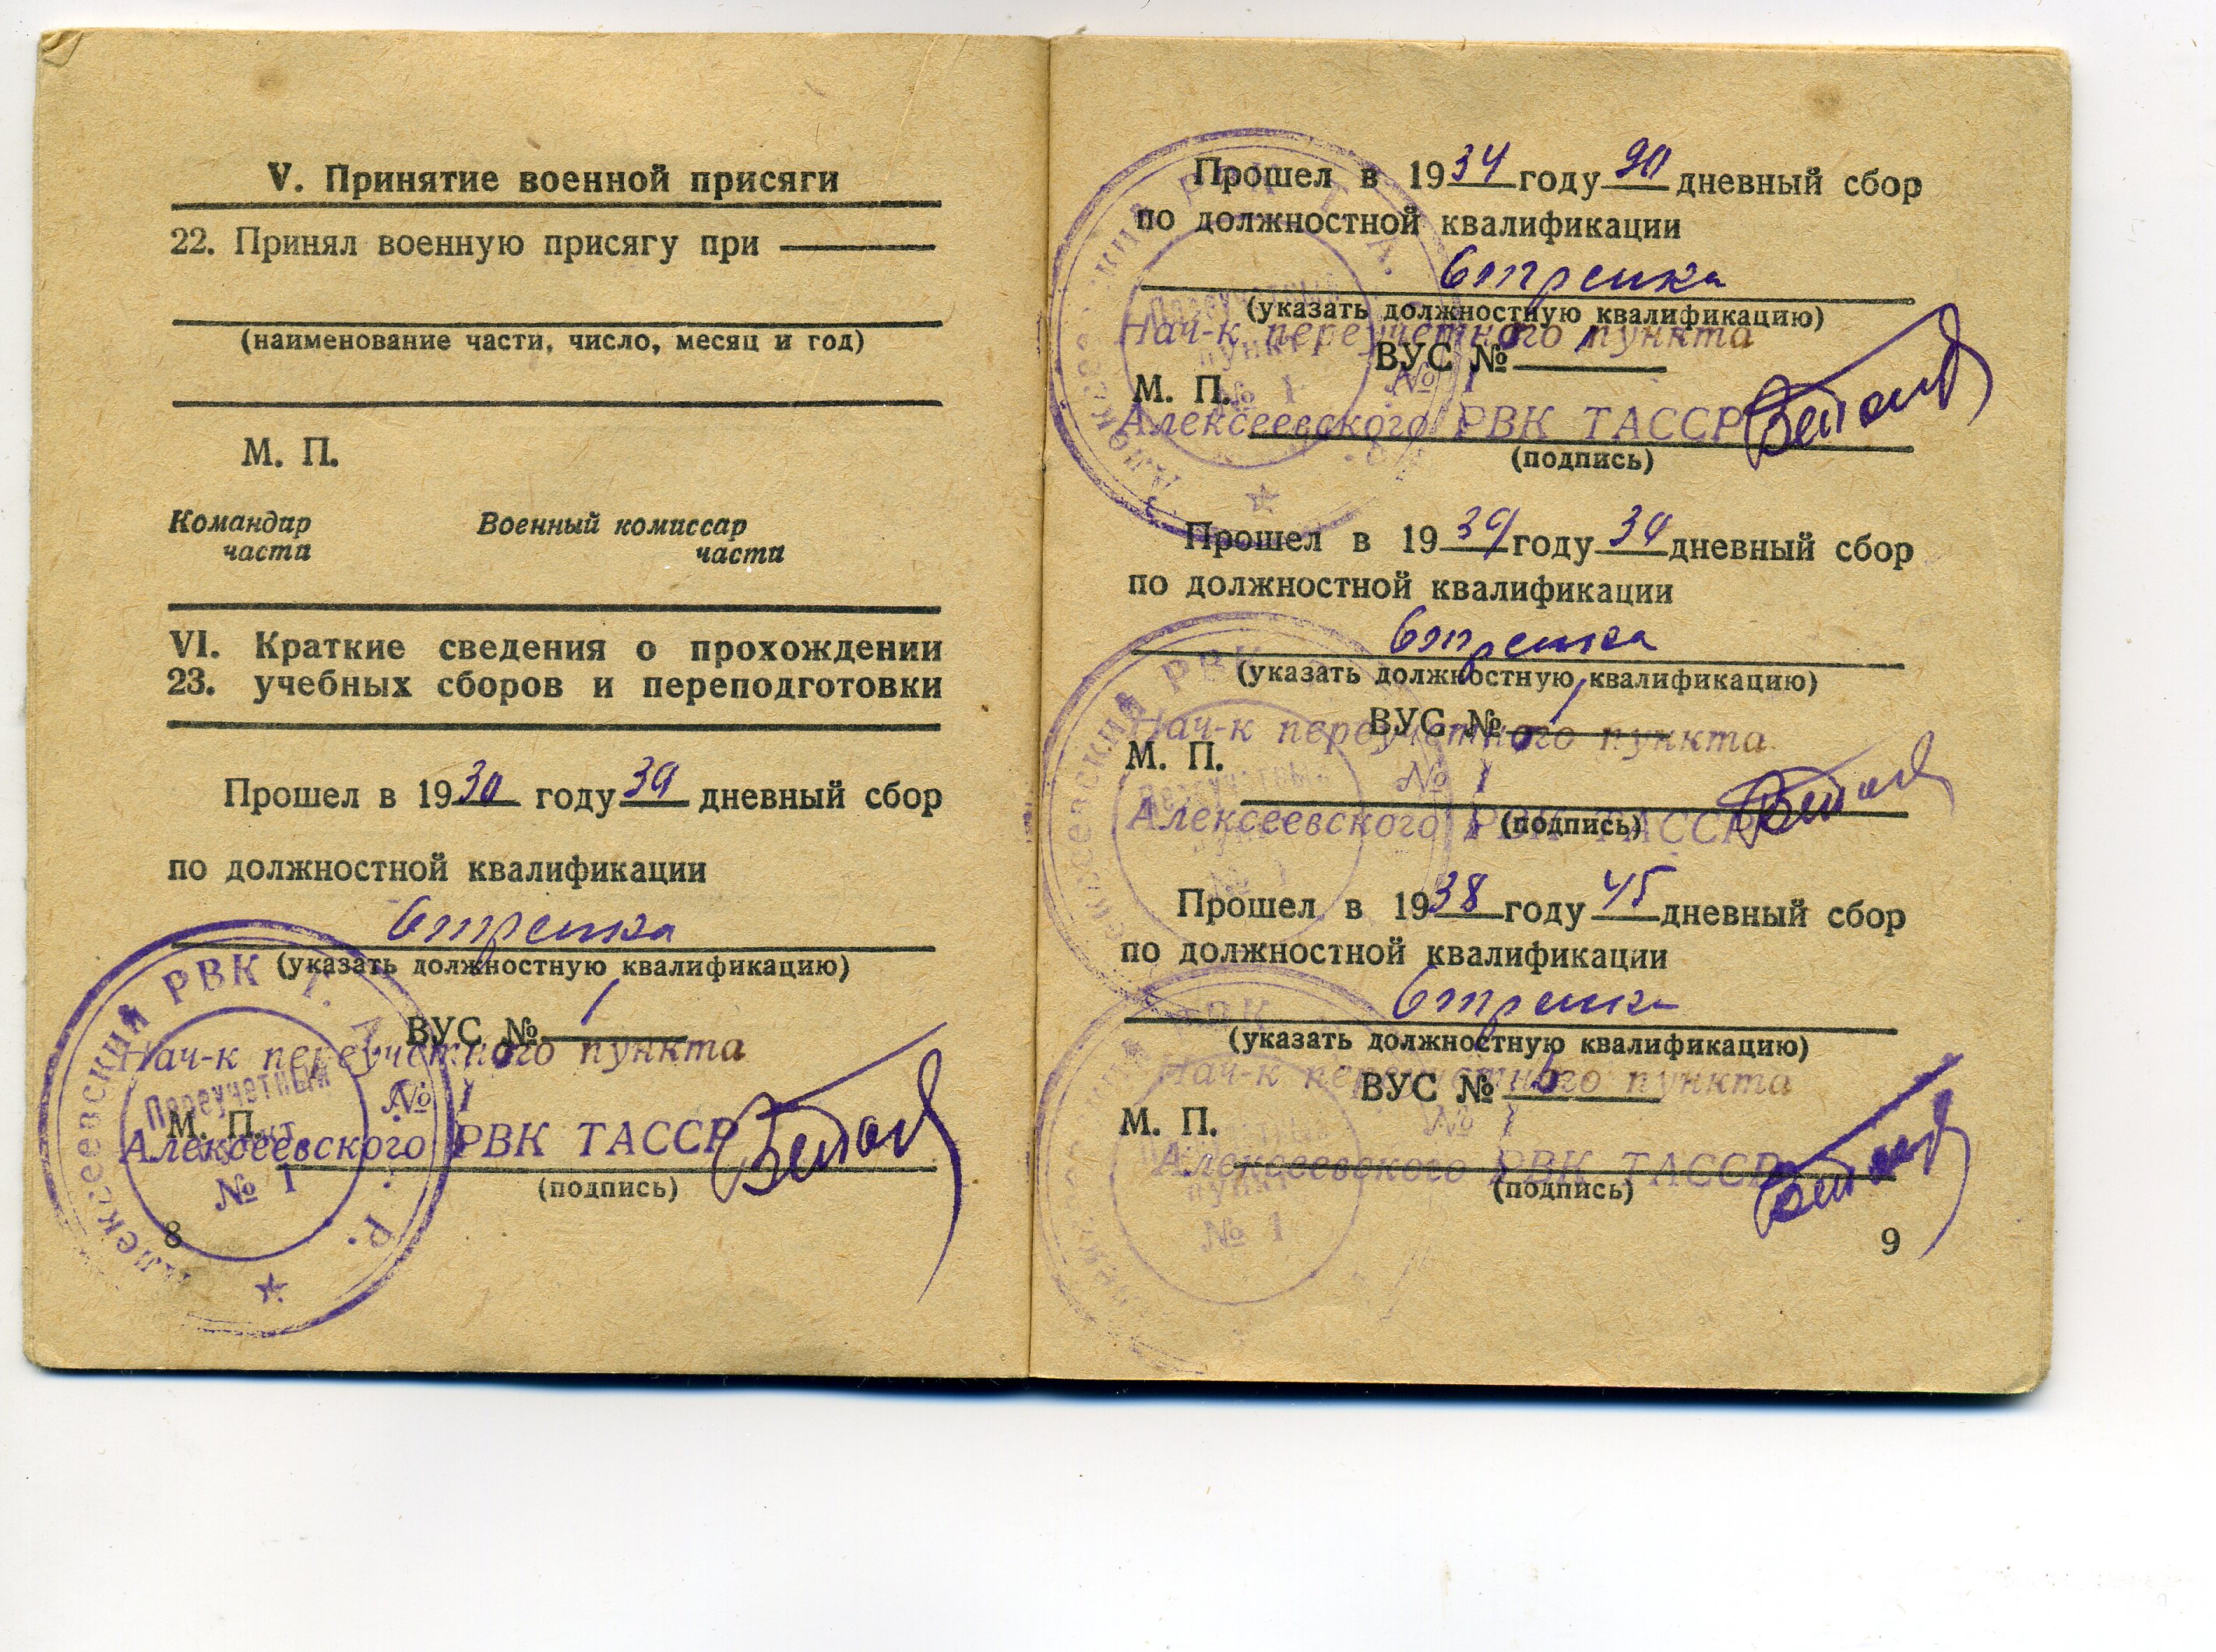 V. Принятие военной присяги
22. Принял военную присягу при
(наименование части, число, месяц и год)
М. П.
Командир части
Военный комиссар части
VI. Краткие сведения о прохождении
23. учебных сборов и переподготовки
Прошел в 1930 году 30 дневный сбор
по должностной квалификации
Стрелка
(указать должностную квалификацию)
ВУС № 1
Нач-к переучетного пункта
№ 1
М. П.
Алексеевского РВК ТАССР
(подпись)
Алексеевский РВК Т. А. Р.
Переучетный
пункт
№ 1
8
Прошел в 1934 году дневный сбор
по должностной квалификации
Стрелка
(указать должностную квалификацию)
Нач-к переучетного пункта
ВУС № 1
№ 1
М. П.
Алексеевского РВК ТАССР
(подпись)
Переучетный
пункт
№ 1
Прошел в 19 году дневный сбор
по должностной квалификации
Стрелка
(указать должностную квалификацию)
ВУС № 1
Нач-к переучетного пункта
М. П.
№ 1
Алексеевского РВК ТАССР
(подпись)
Прошел в 1938 году 45 дневный сбор
по должностной квалификации
Стрелка
(указать должностную квалификацию)
Нач-к переучетного пункта
ВУС №
№ 1
М. П.
Алексеевского РВК ТАССР
(подпись)
пункт
№ 1
9